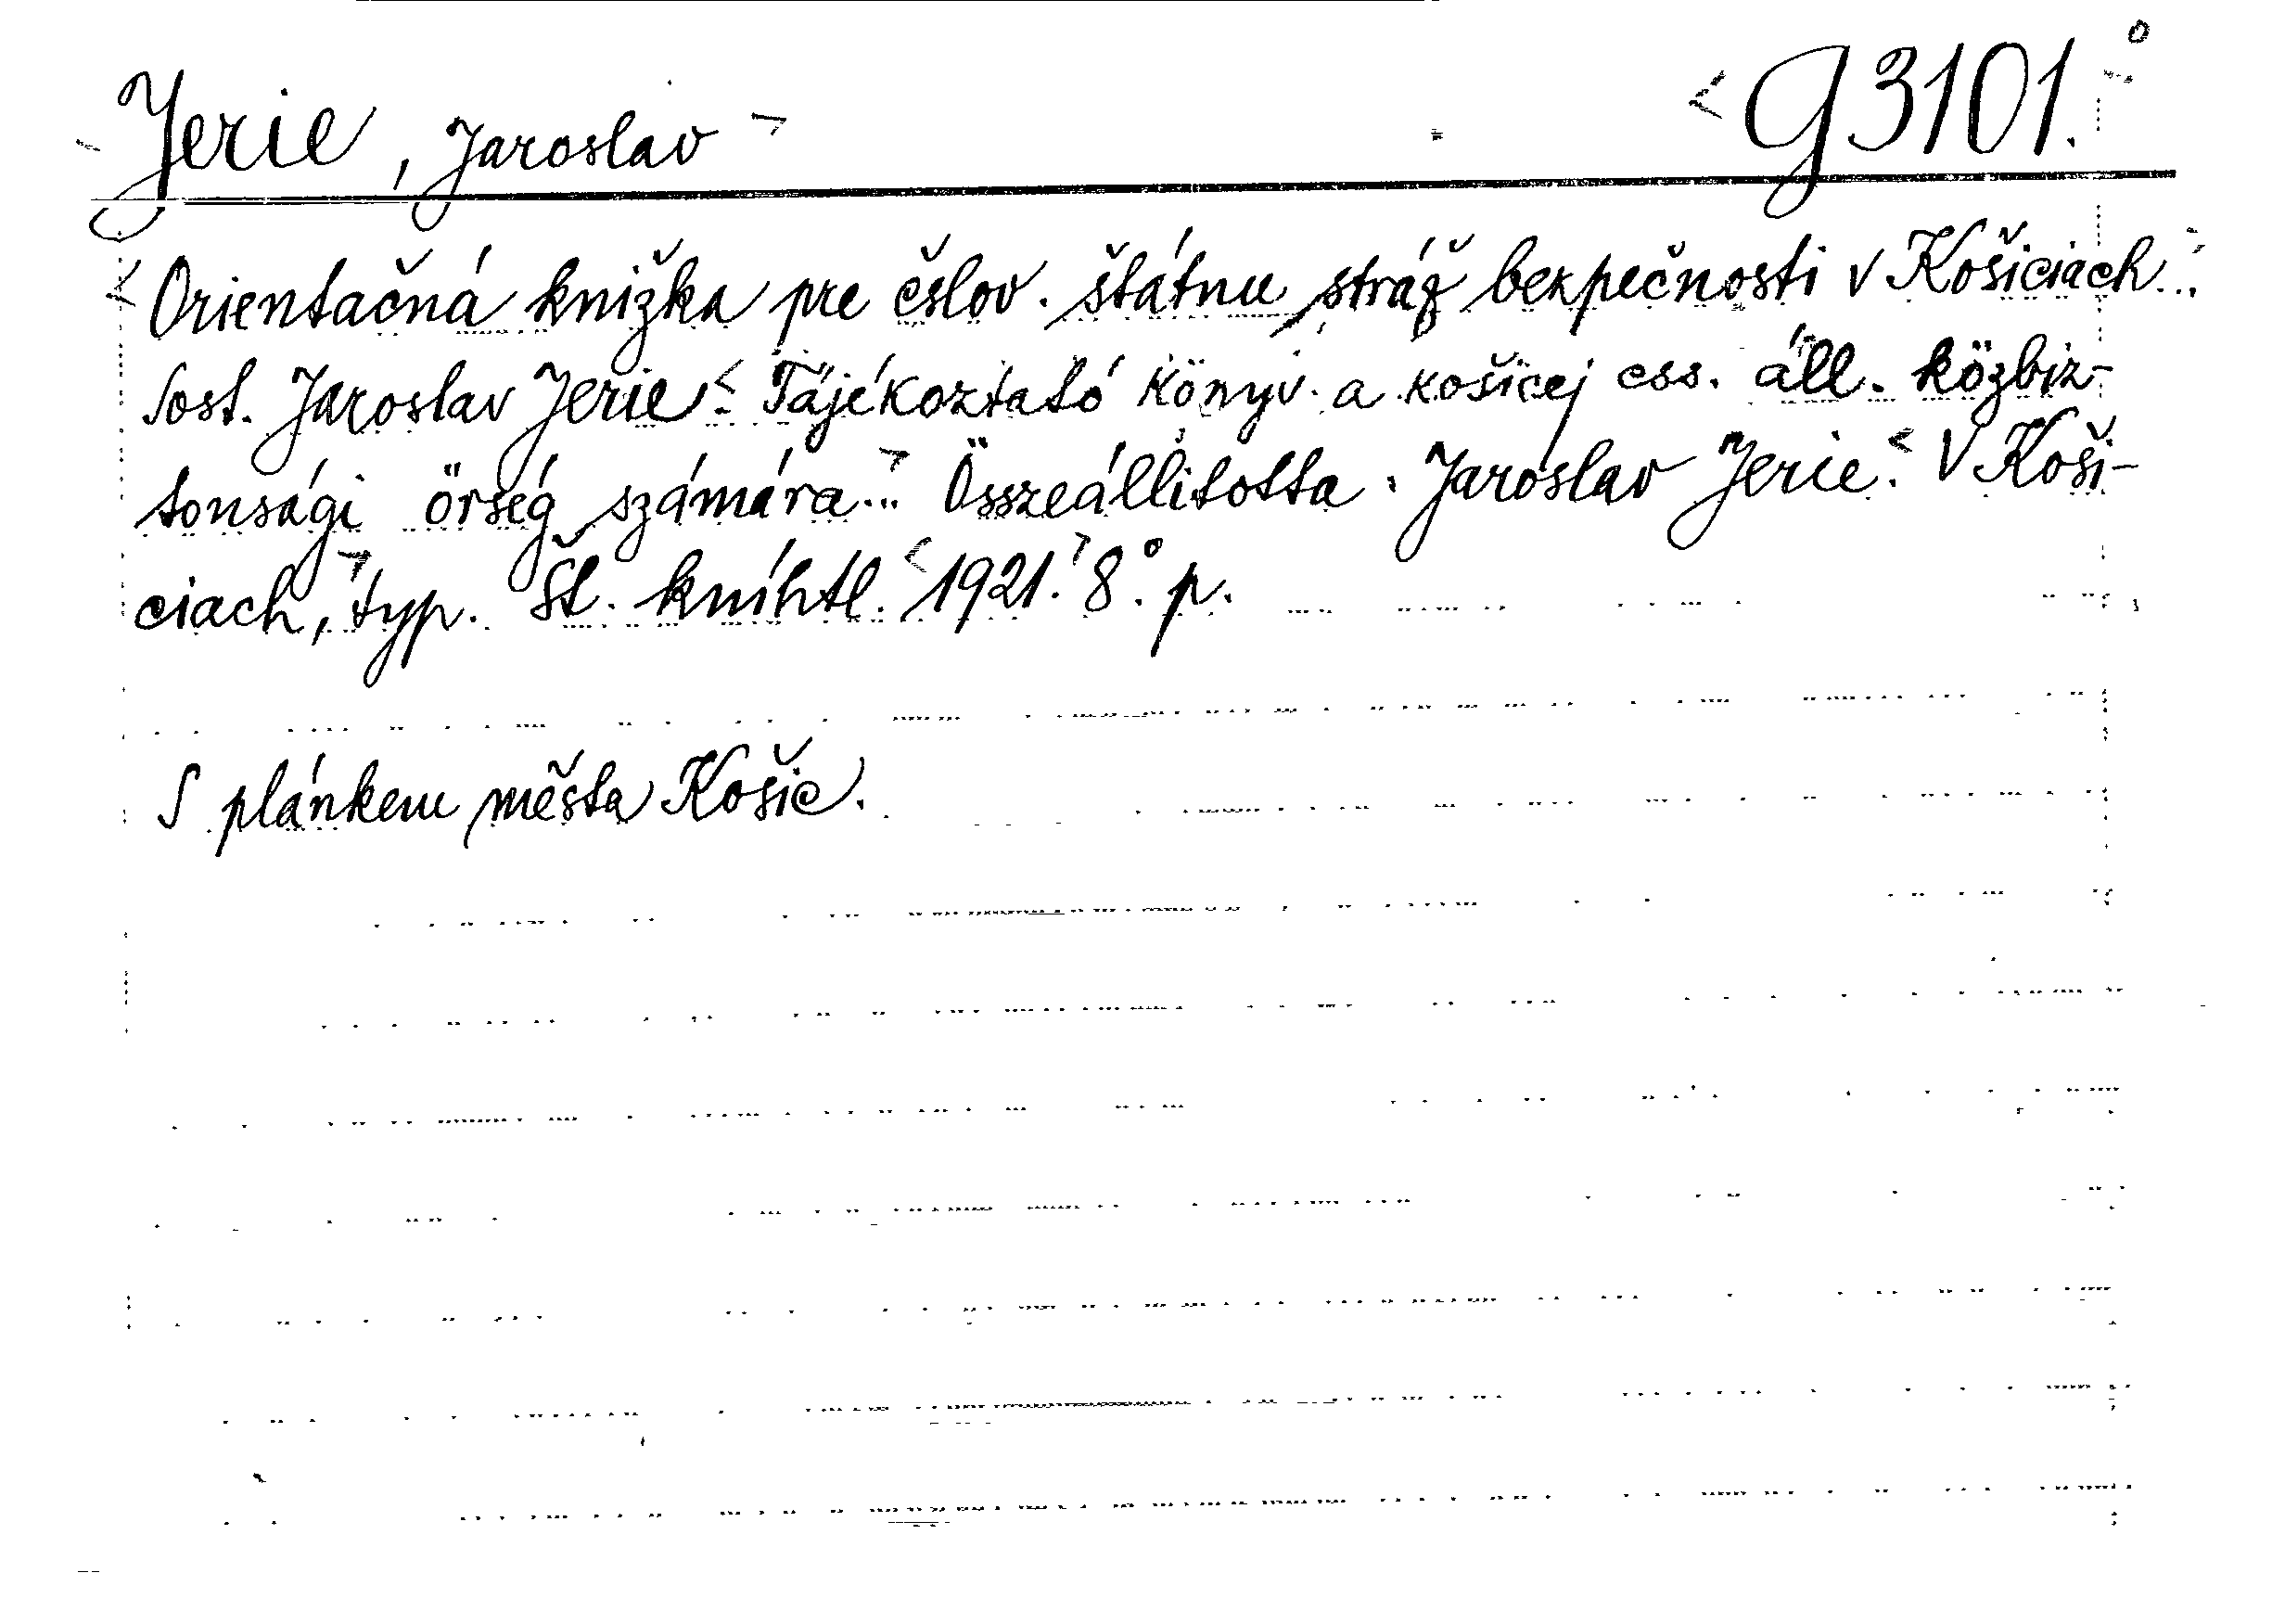 Jerie, Jaroslav G 3101.
Orientačná knižka pre čslov. štátnu stráž bezpečnosti v Košiciach.
Sost. Jaroslav Jerie. Tájékoztató könyv a košicej css. áll. közbiz-
tonsági örség számára. Összeállitotta Jaroslav Jerie. V Koši-
ciach, typ. Št. kníhtl. 1921. 8° p.
S plánkem města Košic.